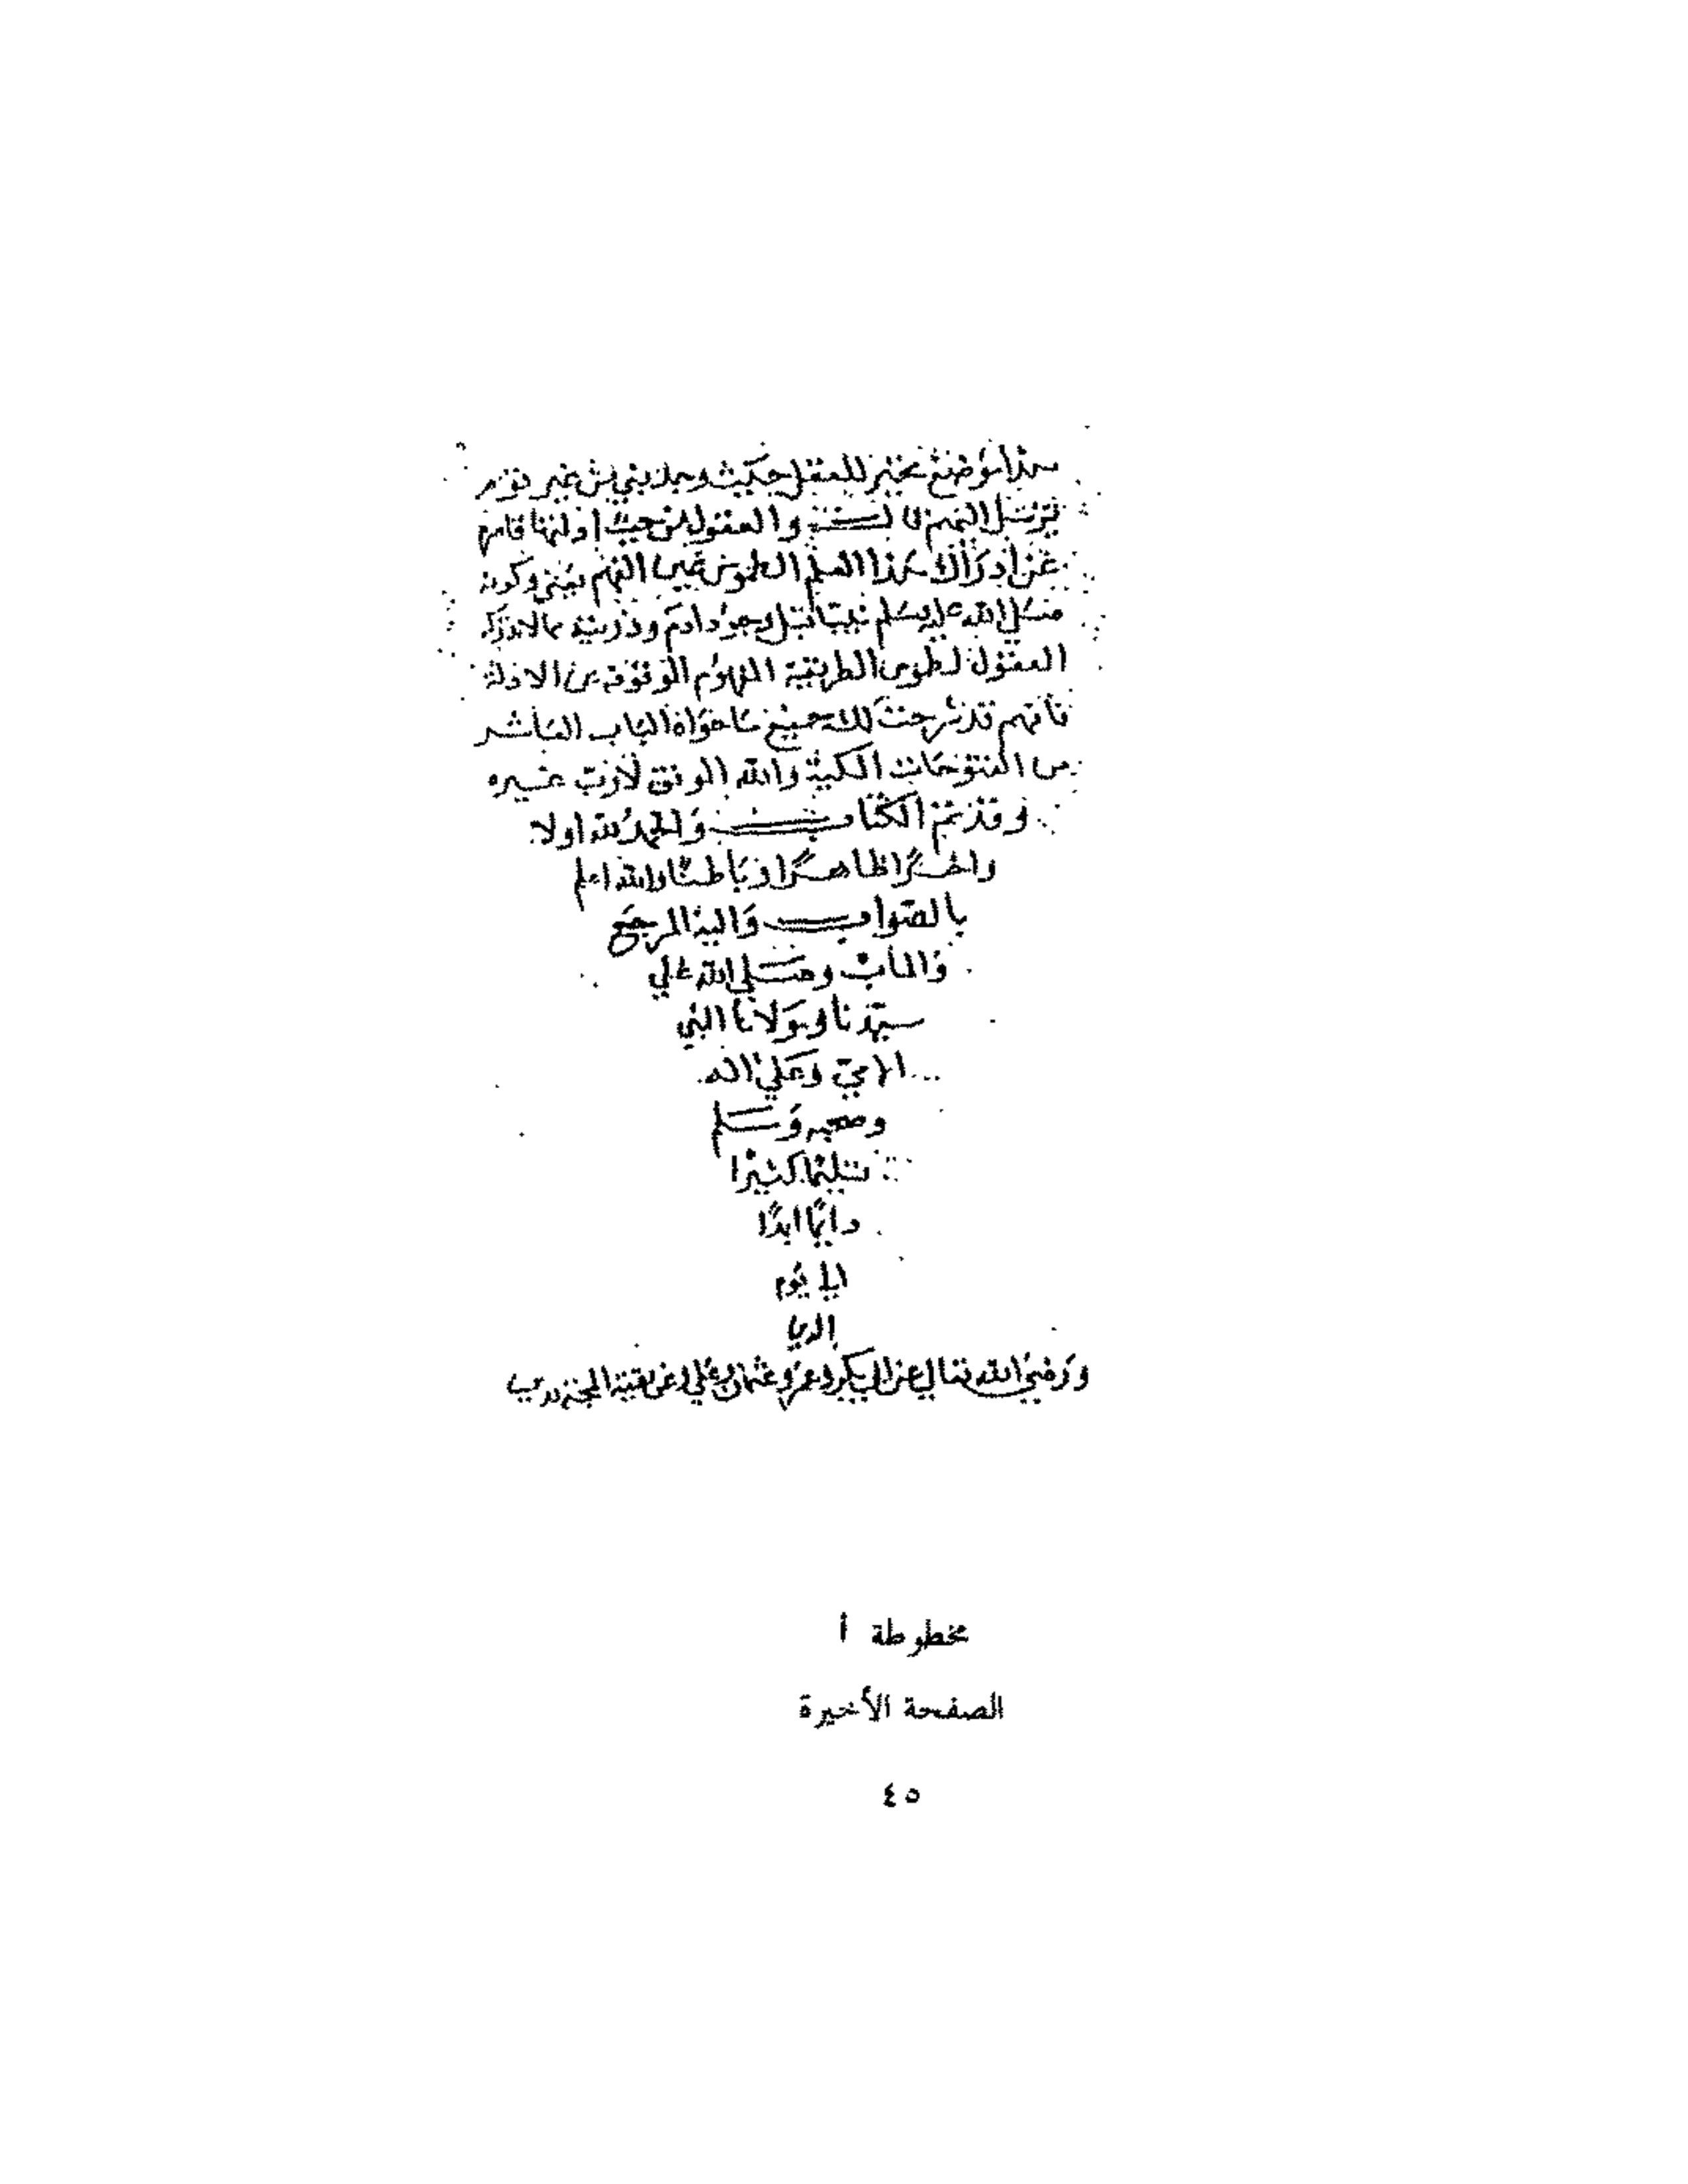 هذا موضع محير للعقل حيث وجد بني من غير
الفهم والعقول من حيث ادلتها قاصرة
عن ادراك هذا العلم الطموس عين الفهم وكونه
صلى الله عليه وسلم نبيا قبل وجود ادم وذريته مما لا تدركه
العقول لطموس الطريقة الفهوم الموقوفة على الادلة
فافهم قد شرحت لك جميع ما حواه الباب العاشر
من الفتوحات المكية والله الموفق لا رب غيره
وقد تم الكتاب والحمد لله اولا
واخرا ظاهرا وباطنا والله اعلم
بالصواب واليه المرجع
والماب وصلى الله على
سيدنا ومولانا النبي
الامي وعلى اله
وصحبه وسلم
تسليما كثيرا
دايما ابدا
الى يوم
الدين
ورضي الله تعالى عن ابي بكر وعمر وعثمان وعلي وعن بقية
مخطوطة أ
الصفحة الأخيرة
٤٥